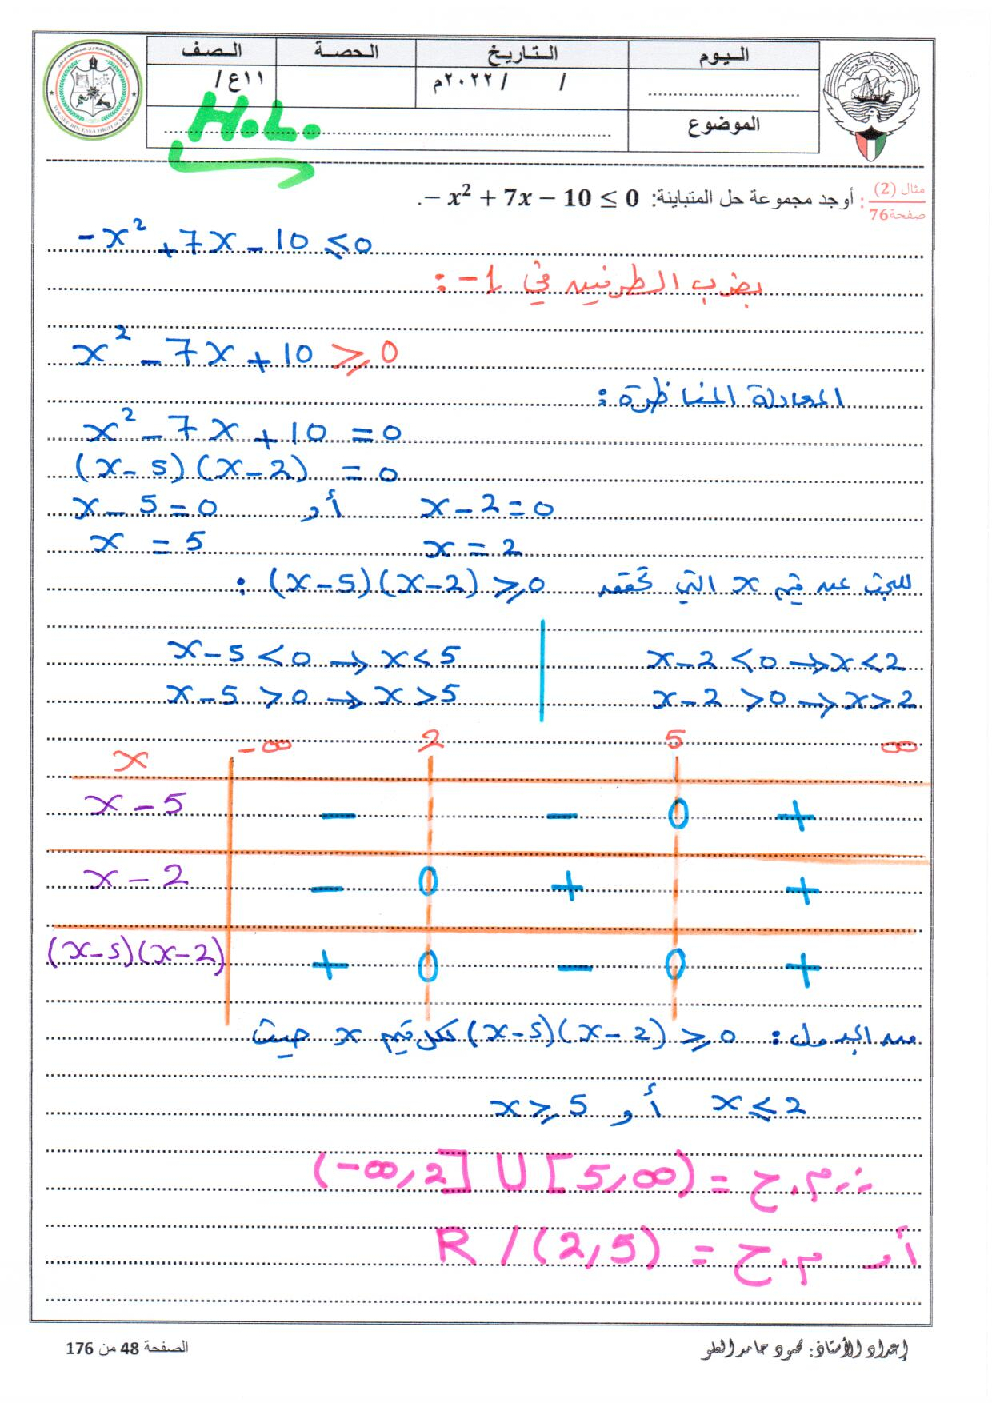 اليوم التاريخ الحصة الصف
/ / ٢٠٢٢م ١١ع /
الموضوع
H.L.
مثال (2) صفحة76 : أوجد مجموعة حل المتباينة: − x² + 7x − 10 ≤ 0.
-x² + 7x - 10 ≤ 0
بضرب الطرفين في 1- :
x² - 7x + 10 ≥ 0
المعادلة المناظرة :
x² - 7x + 10 = 0
(x - 5)(x - 2) = 0
x - 5 = 0 أو x - 2 = 0
x = 5 x = 2
للبحث عن قيم x التي تحقق (x-5)(x-2) ≥ 0 :
x - 5 < 0 → x < 5 x - 2 < 0 → x < 2
x - 5 > 0 → x > 5 x - 2 > 0 → x > 2
x -∞ 2 5 ∞
x - 5 - - 0 +
x - 2 - 0 + +
(x-5)(x-2) + 0 - 0 +
من الجدول : (x-5)(x-2) ≥ 0 لكل قيم x حيث
x ≥ 5 أو x ≤ 2
∴ م.ح = (-∞,2] ∪ [5,∞)
أو م.ح = R /(2,5)
إعداد الأستاذ: محمود حامد العلو
الصفحة 48 من 176